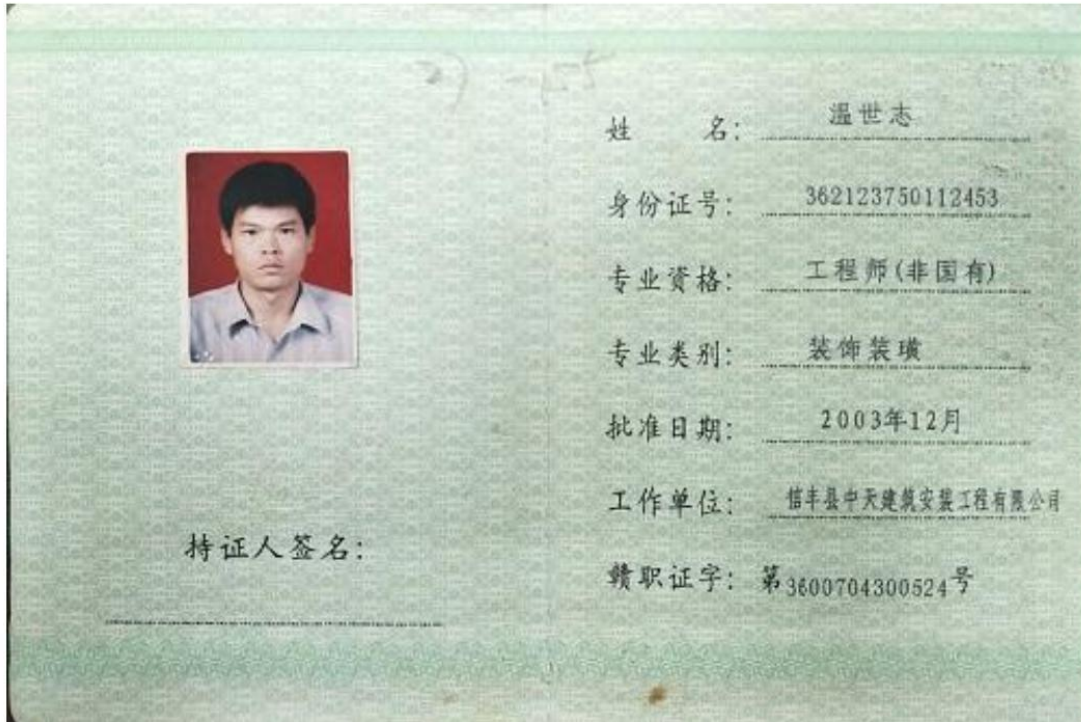 姓 名: 温世志
身份证号: 362123750112453
专业资格: 工程师(非国有)
专业类别: 装饰装璜
批准日期: 2003年12月
工作单位: 信丰县中天建筑安装工程有限公司
持证人签名:
赣职证字: 第3600704300524号